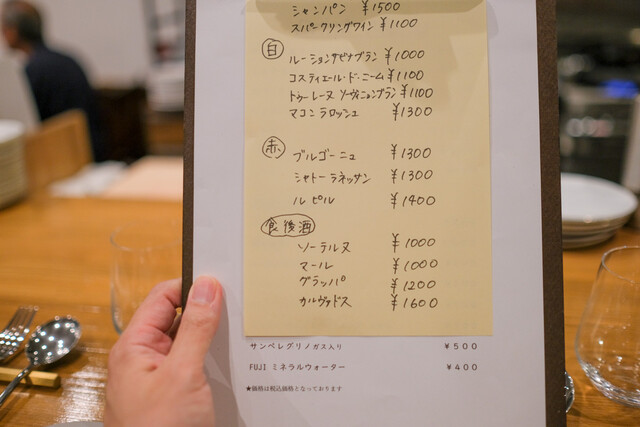 シャンパン ¥1500
スパークリングワイン ¥1100
白
ルーションサゼナブラン ¥1000
コスティエール・ド・ニーム ¥1100
トゥーレーヌ ソーヴィニョンブラン ¥1100
マコン ラロッシュ ¥1300
赤
ブルゴーニュ ¥1300
シャトーラネッサン ¥1300
ル ピル ¥1400
食後酒
ソーテルヌ ¥1000
マール ¥1000
グラッパ ¥1200
カルヴァドス ¥1600
サンペレグリノガス入り ¥500
FUJI ミネラルウォーター ¥400
★価格は税込価格となっております